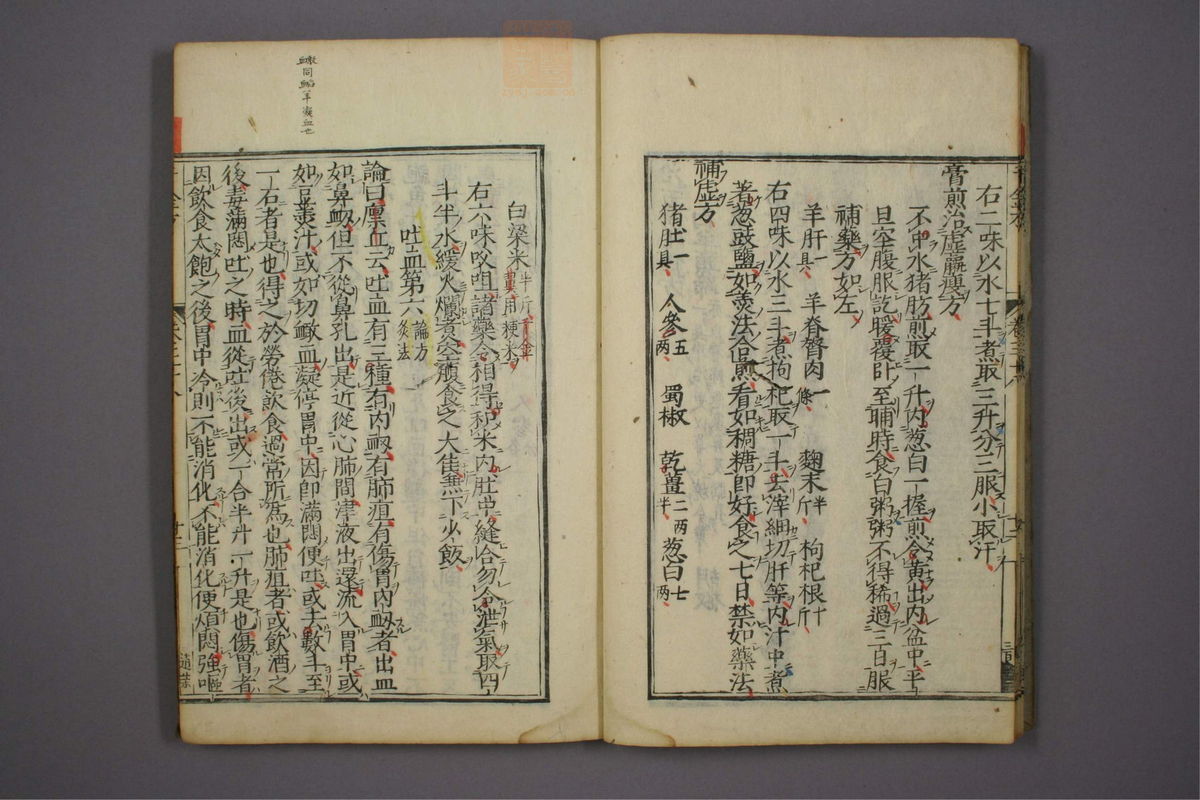 右二味以水七斗煮取三升分三服小取汗
膏煎治虛羸瘦方
不中水猪肪煎取一升內葱白一握煎令黃出內盆中平
旦空腹服訖暖覆臥至晡時食白粥粥不得稀過三日服
補藥方如左
羊肝一具 羊脊膂肉一條 麴末半斤 枸杞根十斤
右四味以水三斗煮枸杞取一斗去滓細切肝等內汁中煮
著葱豉鹽如羹法合煎看如稠糖即好食之七日禁如藥法
補虛方
猪肚一具 人參五兩 蜀椒 乾薑二兩半 葱白七兩
白梁米半斤千金翼用粳米
右六味㕮咀諸藥令相得和米內肚中縫合勿令泄氣取四
斗半水緩火爛煮空腹食之大佳兼下少飯
吐血第六論方灸法
論曰廩丘云吐血有三種有內衂有肺疽有傷胃內衂者出血
如鼻衂但不從鼻孔出是近從心肺間津液出還流入胃中或
如豆羹汁或如切䘓血凝停胃中因即滿悶便吐或去數斗至
一石者是也得之於勞倦飲食過常所爲也肺疽者或飲酒之
後毒滿悶吐之時血從吐後出或一合半升一升是也傷胃者
因飲食太飽之後胃中冷則不能消化不能消化便煩悶強嘔